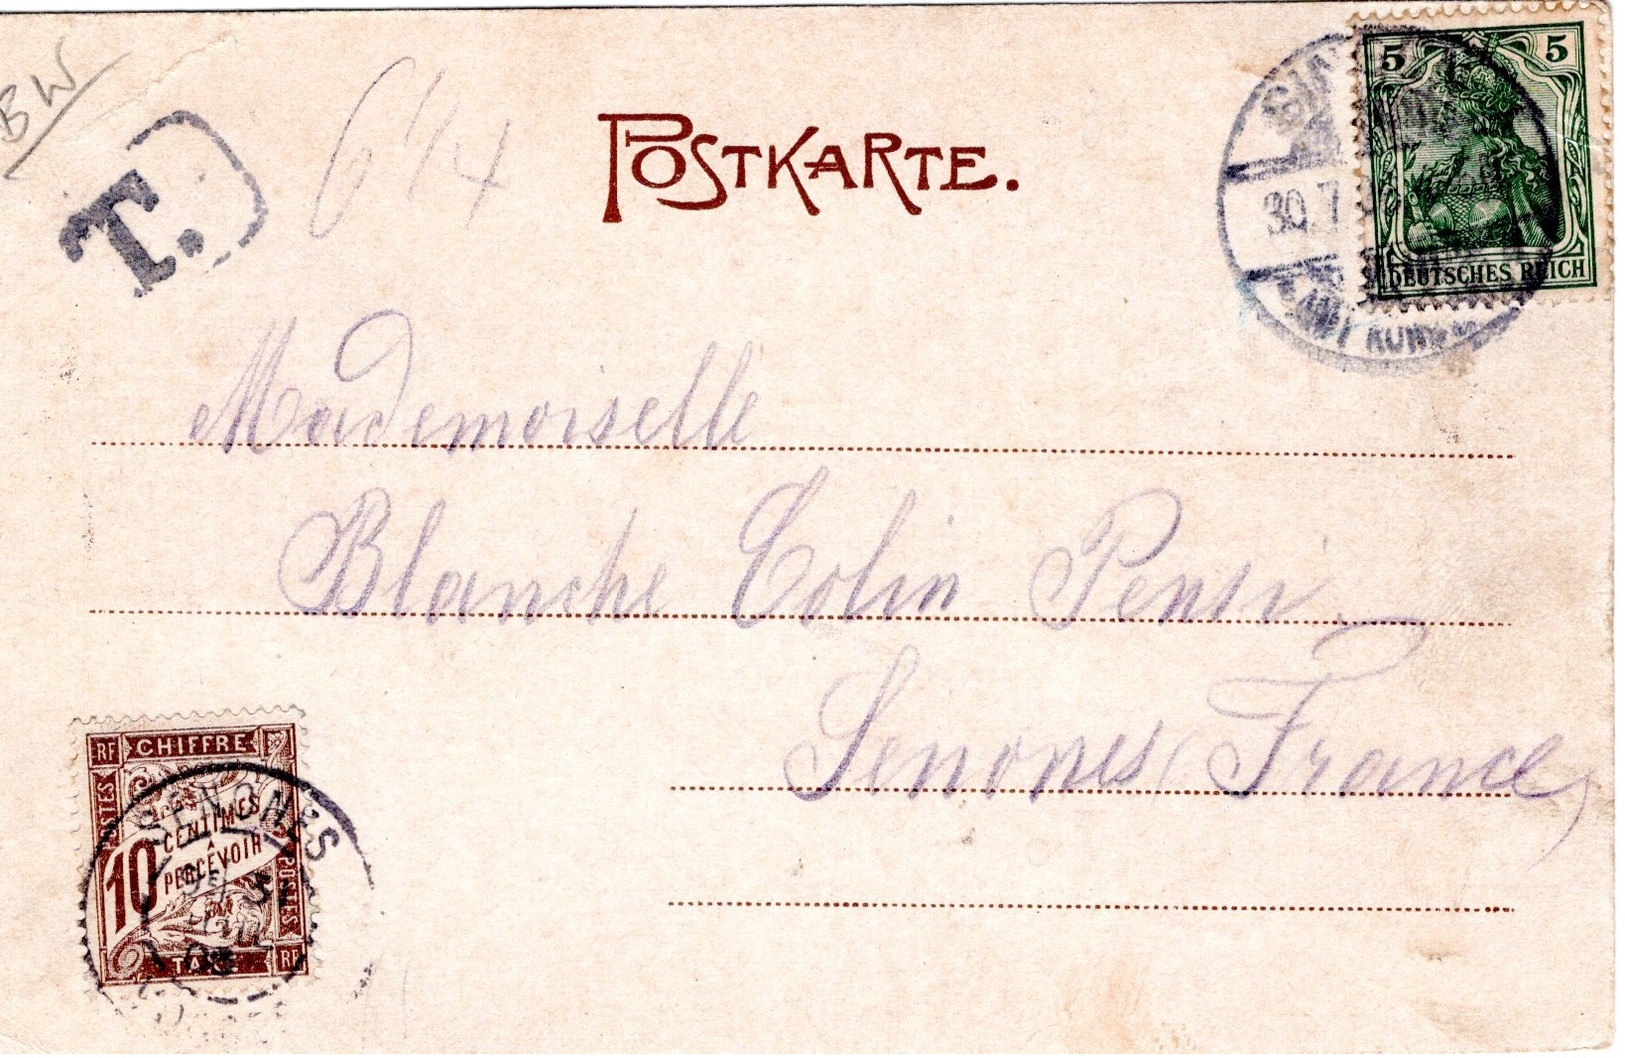 BW
T.
6 1/4
POSTKARTE.
5 5
DEUTSCHES REICH
30.7
Mademoiselle
Blanche Colin Pensi
Senones (France)
RF CHIFFRE
POSTES
10 CENTIMES
À
PERCEVOIR
POSTES
TAXE RF
SENONES
31